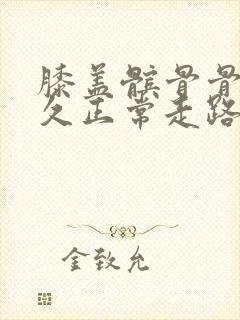 膝盖髌骨骨
久正常走路
金致允